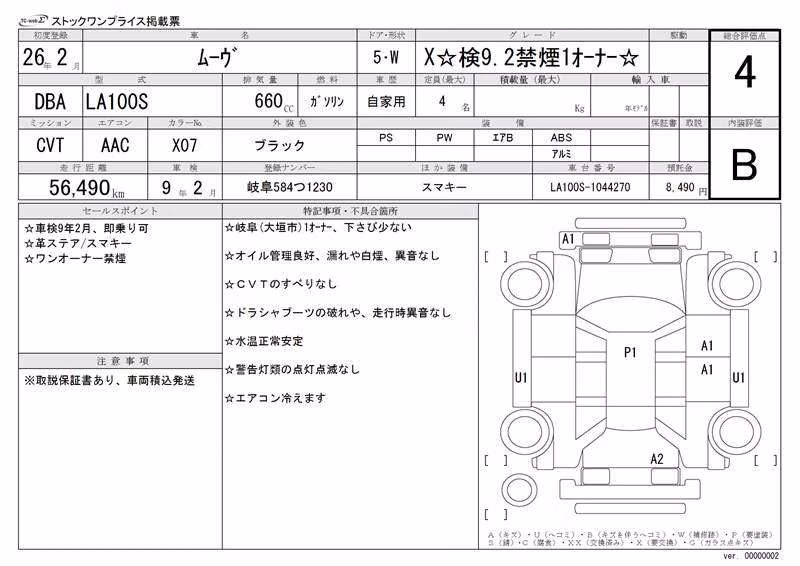 TC-webΣ ストックワンプライス掲載票
初度登録 車名 ドア・形状 グレード 駆動 総合評価点
26年 2月 ムーヴ 5・W X☆検9.2禁煙1オーナー☆ 4
型式 排気量 燃料 車歴 定員(最大) 積載量(最大) 輸入車
DBA LA100S 660CC ガソリン 自家用 4名 Kg 年モデル
ミッション エアコン カラーNo. 外装色 装備 保証書 取説 内装評価
CVT AAC X07 ブラック PS PW エアB ABS B
アルミ
走行距離 車検 登録ナンバー ほか装備 車台番号 預託金
56,490km 9年 2月 岐阜584つ1230 スマキー LA100S-1044270 8,490円
セールスポイント
☆車検9年2月、即乗り可
☆革ステア/スマキー
☆ワンオーナー禁煙
注意事項
※取説保証書あり、車両積込発送
特記事項・不具合箇所
☆岐阜(大垣市)1オーナー、下さび少ない
☆オイル管理良好、漏れや白煙、異音なし
☆CVTのすべりなし
☆ドラシャブーツの破れや、走行時異音なし
☆水温正常安定
☆警告灯類の点灯点滅なし
☆エアコン冷えます
A1
[ ] [ ]
A1
P1
A1
U1 U1
A2
[ ] [ ]
[ ]
A(キズ)・U(ヘコミ)・B(キズを伴うヘコミ)・W(補修跡)・P(要塗装)
S(錆)・C(腐食)・XX(交換済み)・X(要交換)・G(ガラス点キズ)
ver. 00000002